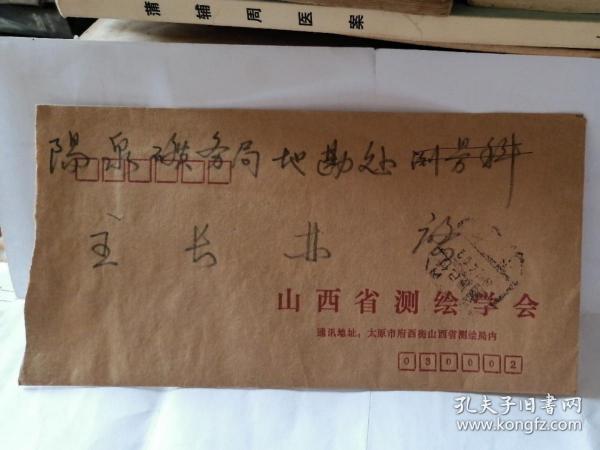 蒲辅周医案
陽泉礦务局地勘处
主长
山西省测绘学会
通讯地址：太原市府西街山西省测绘局内
030002
孔夫子旧书网
www.kongfz.com